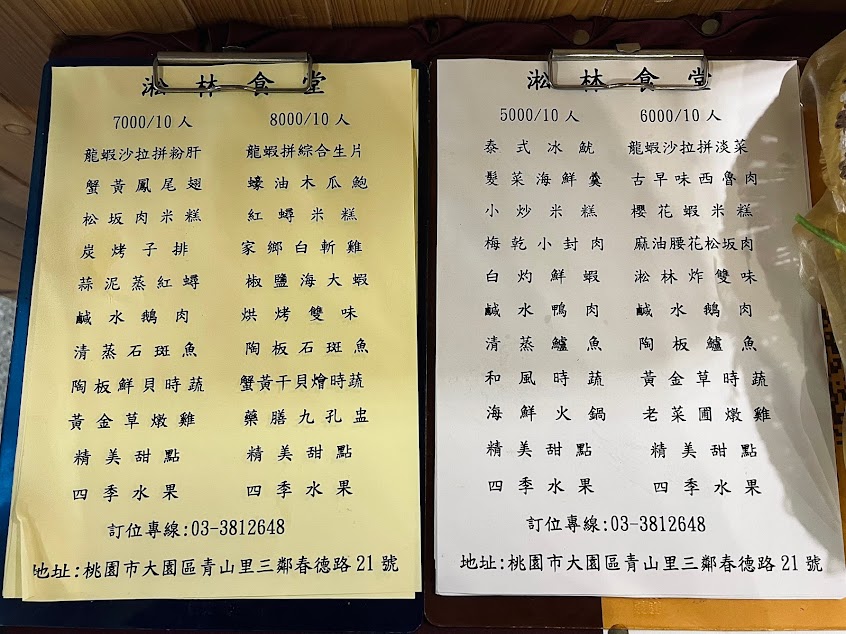 淞林食堂
7000/10人 8000/10人
龍蝦沙拉拼粉肝 龍蝦拼綜合生片
蟹黃鳳尾翅 蠔油木瓜鮑
松坂肉米糕 紅蟳米糕
炭烤子排 家鄉白斬雞
蒜泥蒸紅蟳 椒鹽海大蝦
鹹水鵝肉 烘烤雙味
清蒸石斑魚 陶板石斑魚
陶板鮮貝時蔬 蟹黃干貝燴時蔬
黃金草燉雞 藥膳九孔盅
精美甜點 精美甜點
四季水果 四季水果
訂位專線:03-3812648
地址:桃園市大園區青山里三鄰春德路21號
淞林食堂
5000/10人 6000/10人
泰式冰魷 龍蝦沙拉拼淡菜
髮菜海鮮羹 古早味西魯肉
小炒米糕 櫻花蝦米糕
梅乾小封肉 麻油腰花松坂肉
白灼鮮蝦 淞林炸雙味
鹹水鴨肉 鹹水鵝肉
清蒸鱸魚 陶板鱸魚
和風時蔬 黃金草時蔬
海鮮火鍋 老菜圃燉雞
精美甜點 精美甜點
四季水果 四季水果
訂位專線:03-3812648
地址:桃園市大園區青山里三鄰春德路21號